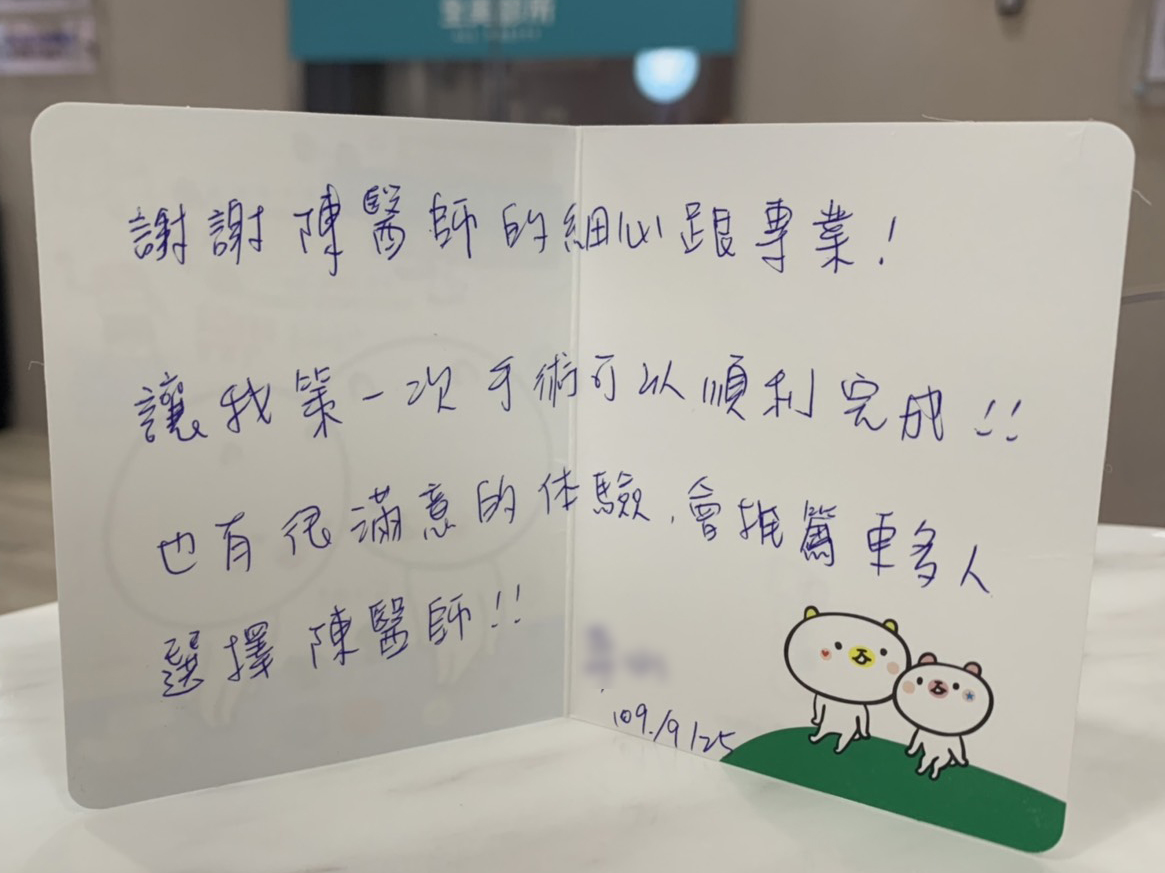 謝謝陳醫師的細心跟專業!
讓我第一次手術可以順利完成!!
也有很滿意的体驗,會推薦更多人
選擇陳醫師!!
109./9/25